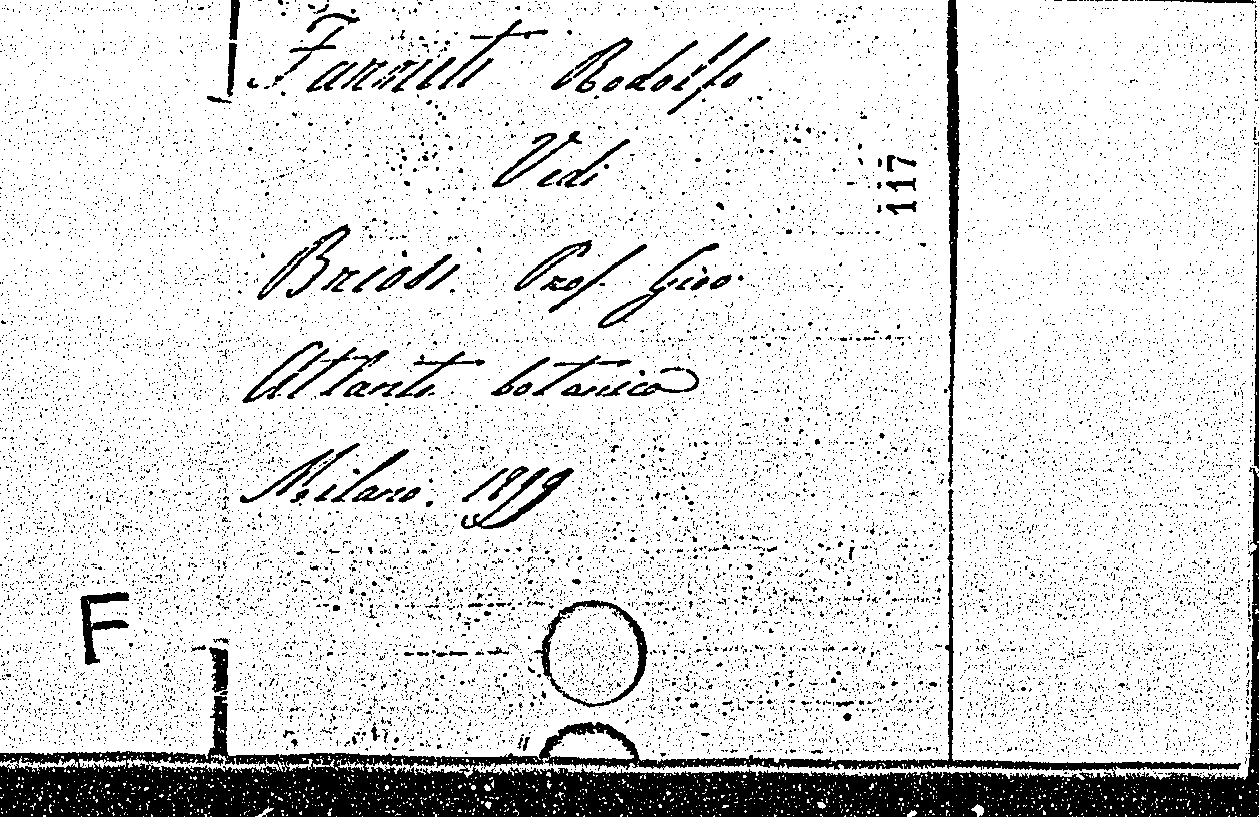 Farneti Rodolfo
Vedi
Briosi. Prof. Giov.
Atlante botanico
Milano. 1899
117
F